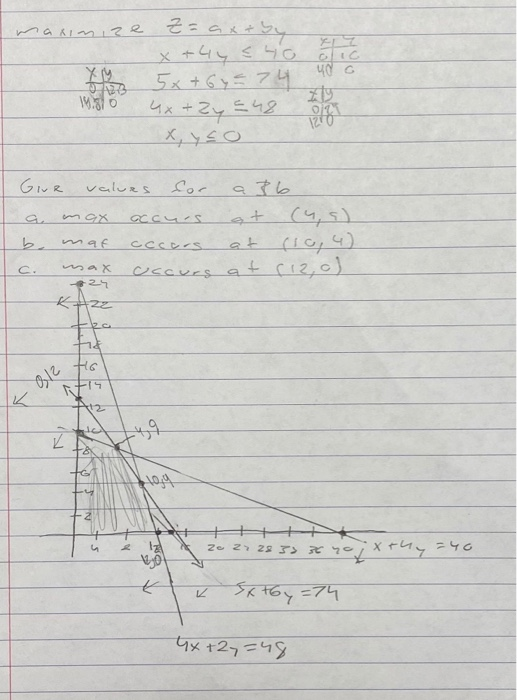 maximize Z = ax + by
x + 4y ≤ 40
x | y
0 | 10
40 | 0
5x + 6y ≤ 74
x | y
0 | 12.3
14.8 | 0
4x + 2y ≤ 48
x | y
0 | 24
12 | 0
x, y ≤ 0
Give values for a & b
a. max occurs at (4, 9)
b. max occurs at (10, 4)
c. max occurs at (12, 0)
24
22
20
18
16
14
0,12
12
10
4,9
8
6
10,4
4
2
4 8 12 16 20 24 28 32 36 40
12,0
x + 4y = 40
5x + 6y = 74
4x + 2y = 48